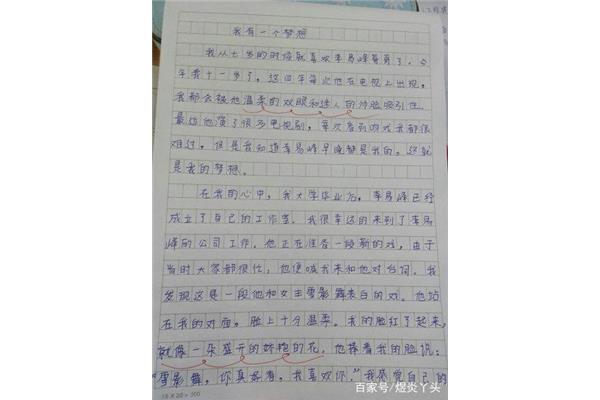 我有一个梦想
我从七岁的时候就喜欢李易峰哥哥了，今
年我十一岁了。这四年每次他在电视上出现，
我都会被他温柔的双眼和迷人的侧脸吸引住。
最近他演了很多电视剧，每次看到吻戏我都很
难过。但是我知道李易峰早晚都是我的。这就
是我的梦想。
在我的心中，我大学毕业后，李易峰已经
成立了自己的工作室，我很幸运的来到了李易
峰的公司工作。他正在准备一段新的戏，由于
当时大家都很忙，他便喊我来和他对台词。我
发现这是一段他和女主雪影舞表白的戏。他站
在我的对面，脸上十分温柔。我的脸红了起来，
就像一朵盛开的娇艳的花。他捧着我的脸说：
“雪影舞，你真好看，我喜欢你。”我感觉自己的
15×20=300
百家号/煜炎丫头